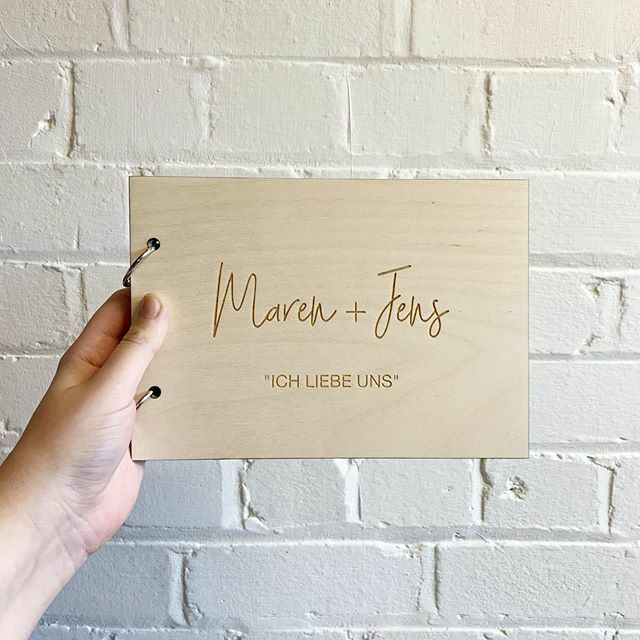 Maren + Jens
"ICH LIEBE UNS"